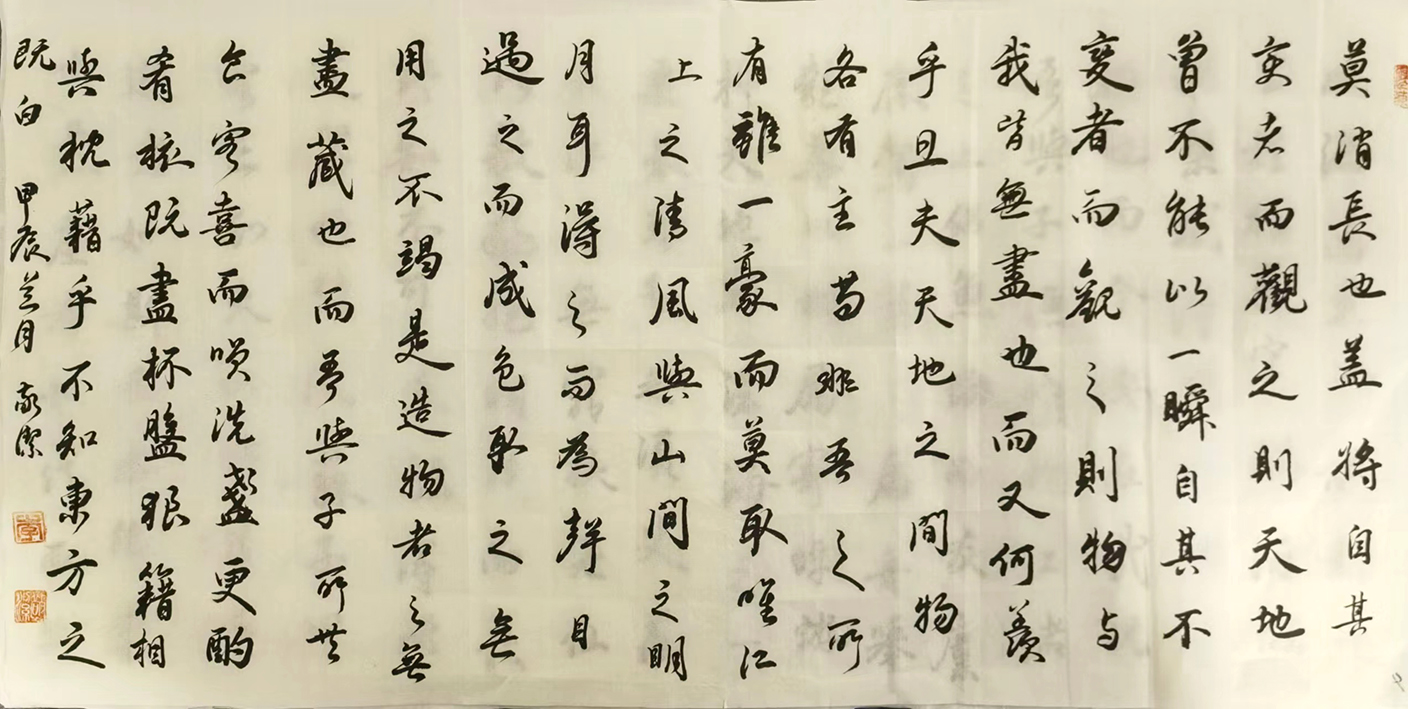 莫消長也蓋將自其
变者而觀之則天地
曾不能以一瞬自其不
變者而觀之則物与
我皆無盡也而又何羨
乎且夫天地之間物
各有主苟非吾之所
有雖一豪而莫取唯江
上之清風與山間之明
月耳得之而為聲目
遇之而成色取之無
用之不竭是造物者之無
盡藏也而吾與子所共
食客喜而笑洗盞更酌
肴核既盡杯盤狼籍相
與枕藉乎不知東方之
既白 甲辰兰月 敬潔